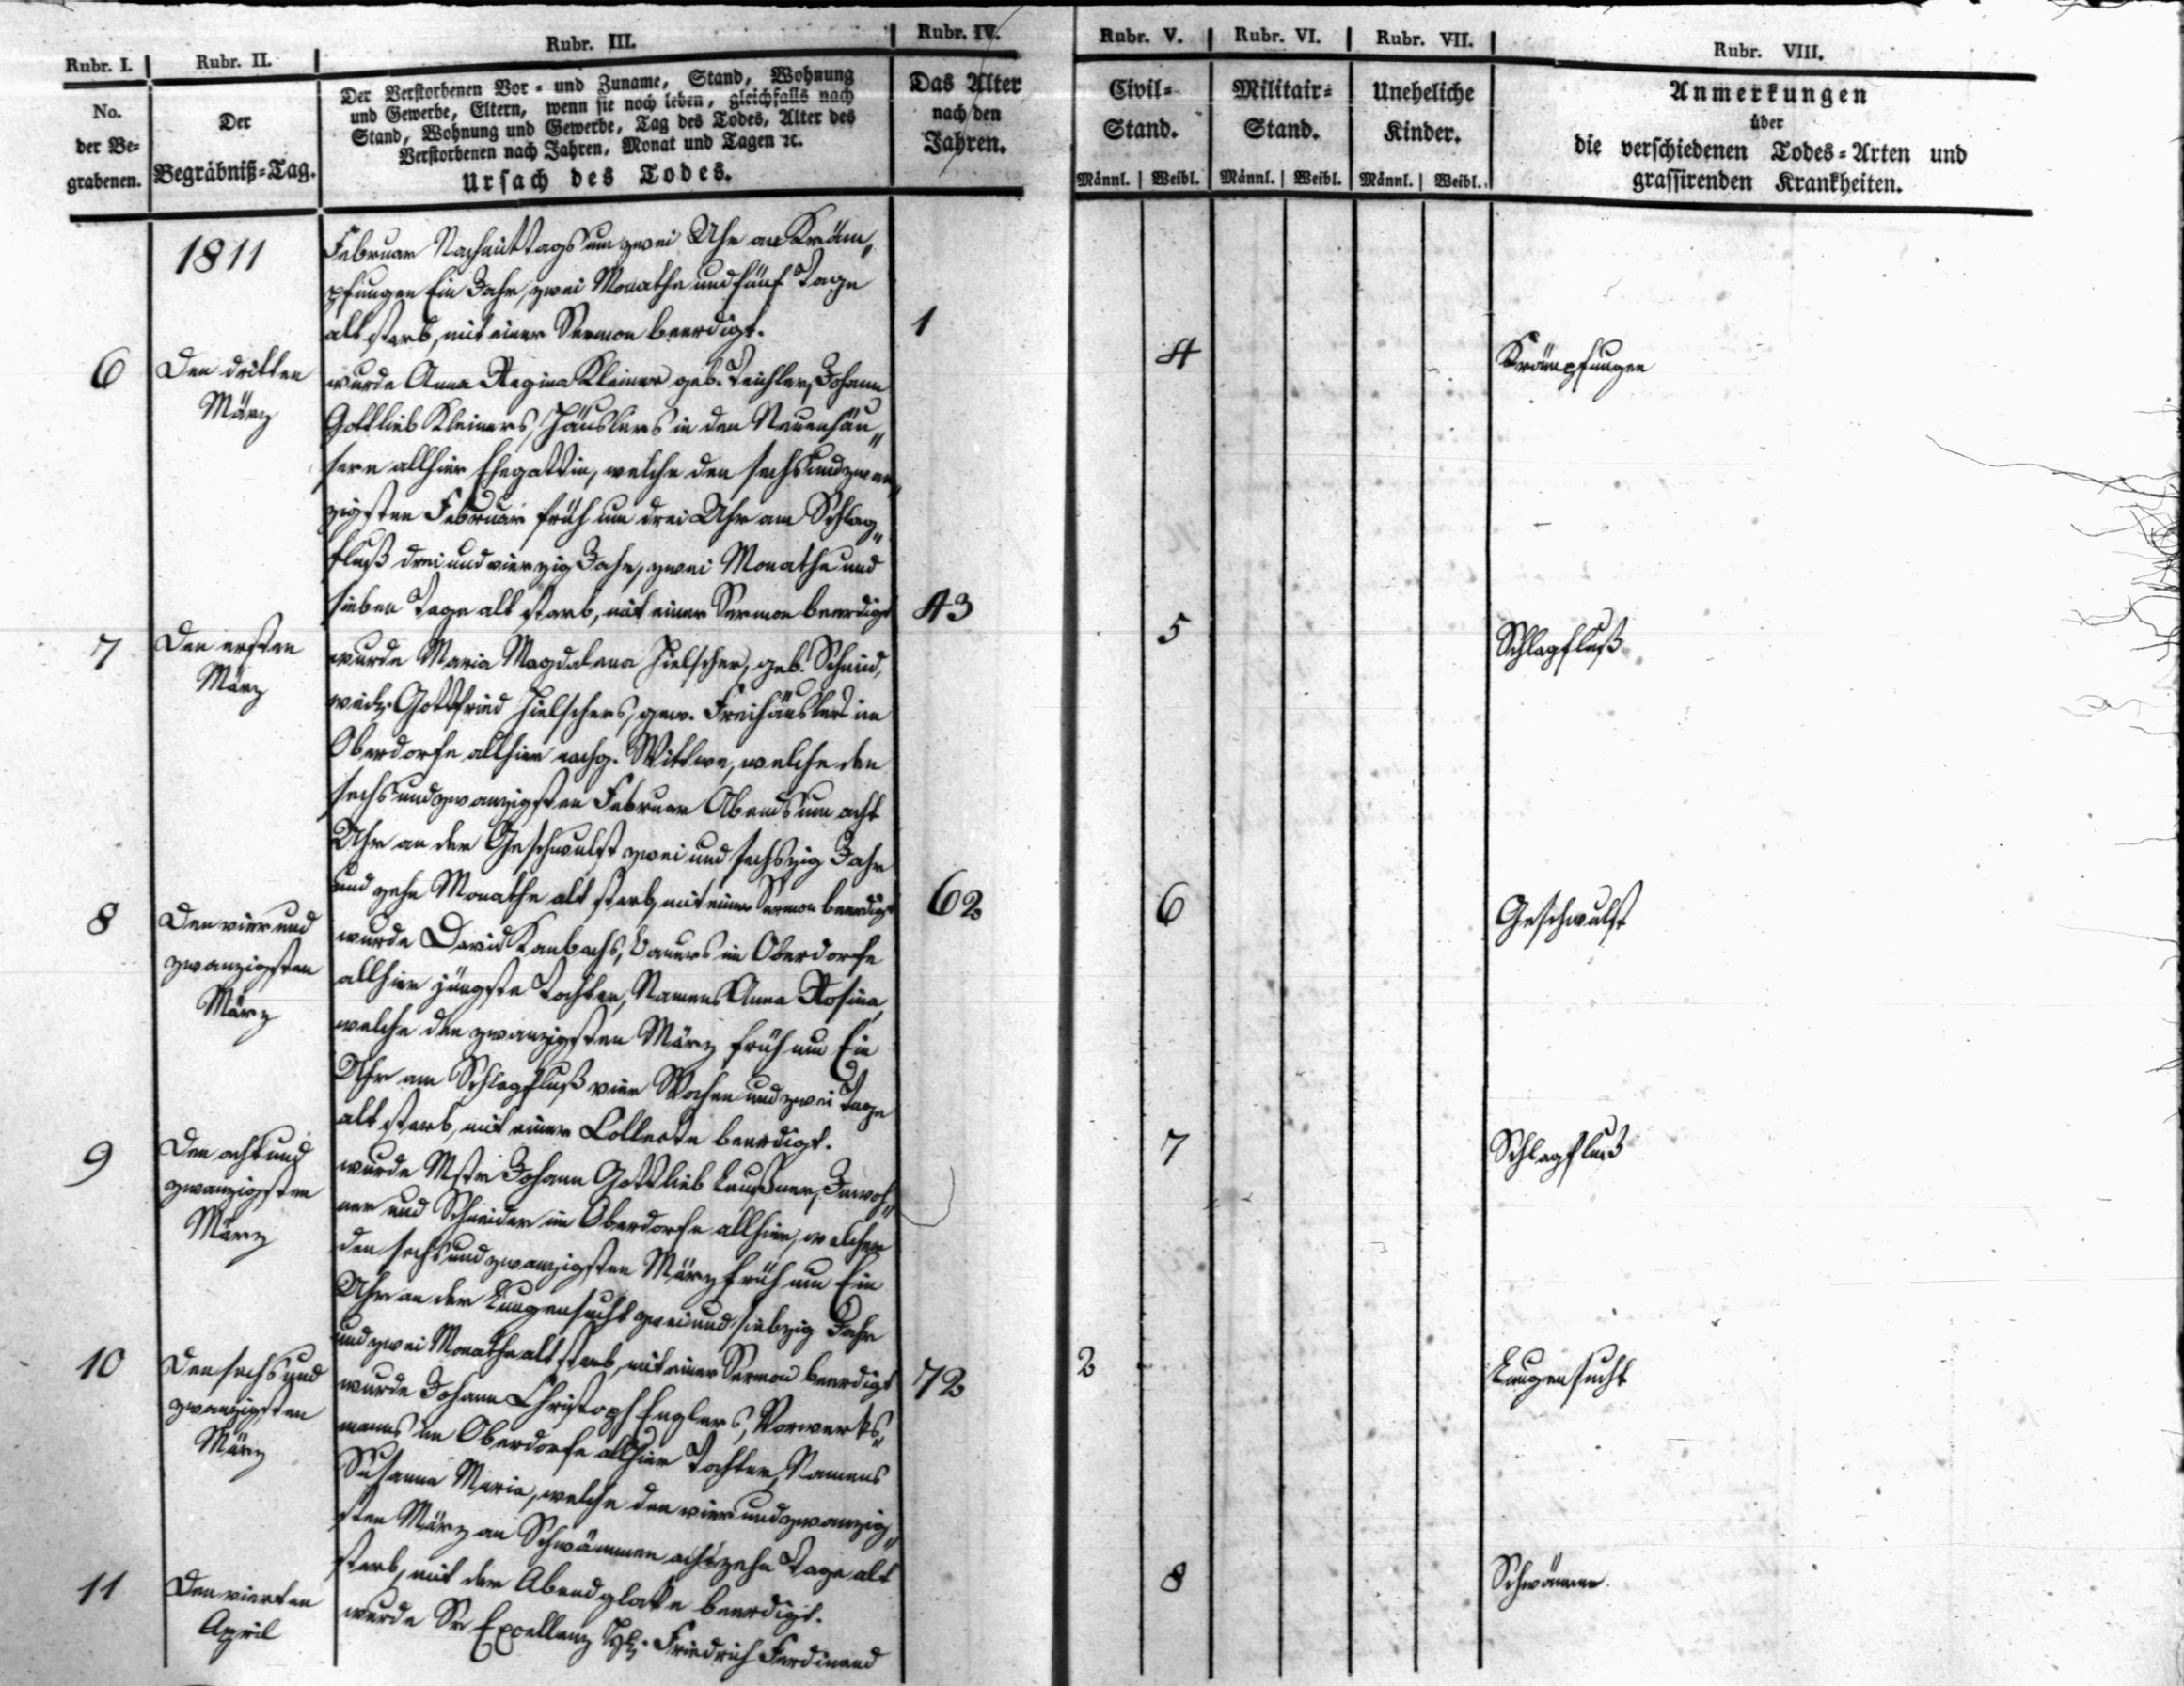 Rubr. I. Rubr. II. Rubr. III. Rubr. IV. Rubr. V. Rubr. VI. Rubr. VII. Rubr. VIII.
No.
der Be-
grabenen.
Der
Begräbniß-Tag.
Der Verstorbenen Vor- und Zuname, Stand, Wohnung
und Gewerbe, Eltern, wenn sie noch leben, gleichfalls nach
Stand, Wohnung und Gewerbe, Tag des Todes, Alter des
Verstorbenen nach Jahren, Monat und Tagen ꝛc.
Ursach des Todes.
Das Alter
nach den
Jahren.
Civil-
Stand.
Männl. Weibl.
Militair-
Stand.
Männl. Weibl.
Uneheliche
Kinder.
Männl. Weibl.
Anmerkungen
über
die verschiedenen Todes-Arten und
grassirenden Krankheiten.
1811
Februar Nachmittags um zwei Uhr an Kräm„
pfungen Ein Jahr, zwei Monathe und fünf Tage
alt starb, mit einer Sermon beerdigt.
1
4
Krämpfungen
6
Den dritten
März
wurde Anna Regina Kleiner geb. Teichler, Johann
Gottlieb Kleiners, Häuslers in den Neuenhäu„
sern allhier Ehegattin, welche den sechsundzwan„
zigsten Februar früh um drei Uhr am Schlag„
fluß dreiundvierzig Jahr, zwei Monathe und
sieben Tage alt starb, mit einer Sermon beerdigt
43
5
Schlagfluß
7
Den ersten
März
wurde Maria Magdalena Hielscher, geb. Schmid,
Gottfried Hielschers, gew. Freihäuslers im
Oberdorfe allhier nachg. Wittwe, welche den
sechsundzwanzigsten Februar Abends um acht
Uhr an der Geschwulst zwei und sechszig Jahr
und zehn Monathe alt starb, mit einer Sermon beerdigt
62
6
Geschwulst
8
Den vier und
zwanzigsten
März
wurde David Kambachs, Bauers im Oberdorfe
allhier jüngste Tochter, Namens Anna Rosina,
welche den zwanzigsten März früh um Ein
Uhr am Schlagfluß vier Wochen und zwei Tage
alt starb, mit einer Collecte beerdigt.
7
Schlagfluß
9
Den acht und
zwanzigsten
März
wurde Mstr Johann Gottlieb Inwoh„
ner und Schneider im Oberdorfe allhier, welcher
den sechsundzwanzigsten März früh um Ein
Uhr an der Lungensucht zwei und siebzig Jahr
und zwei Monathe alt starb, mit einer Sermon beerdigt
72
2
Lungensucht
10
Den sechs und
zwanzigsten
März
wurde Johann Christoph Englers, Vorwerks„
manns im Oberdorfe allhier Tochter, Namens
Susanna Maria, welche den vierundzwanzig„
sten März an Schwämmen achtzehn Tage alt
starb, mit der Abendglocke beerdigt.
8
Schwämme.
11
Den vierten
April
wurde Sr Excellenz Friedrich Ferdinand